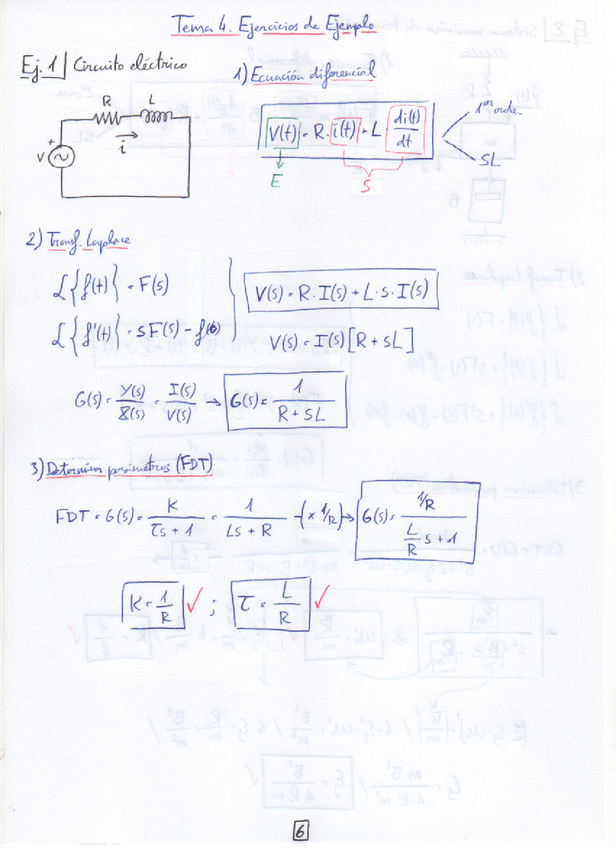 Tema 4. Ejercicios de Ejemplo
Ej. 1 Circuito eléctrico
1) Ecuación diferencial
R L
V + i
V(t) = R · i(t) + L · di(t)/dt
1er orden
SL
E S
2) Transf. Laplace
L{f(t)} = F(s)
L{f'(t)} = sF(s) - f(0)
V(s) = R · I(s) + L · s · I(s)
V(s) = I(s) [R + sL]
G(s) = Y(s)/X(s) = I(s)/V(s) → G(s) = 1/(R + sL)
3) Determinar parámetros (FDT)
FDT = G(s) = K/(τs + 1) = 1/(Ls + R) -(× 1/R)→ G(s) = (1/R)/(L/R s + 1)
K = 1/R ✓ ; τ = L/R ✓
6